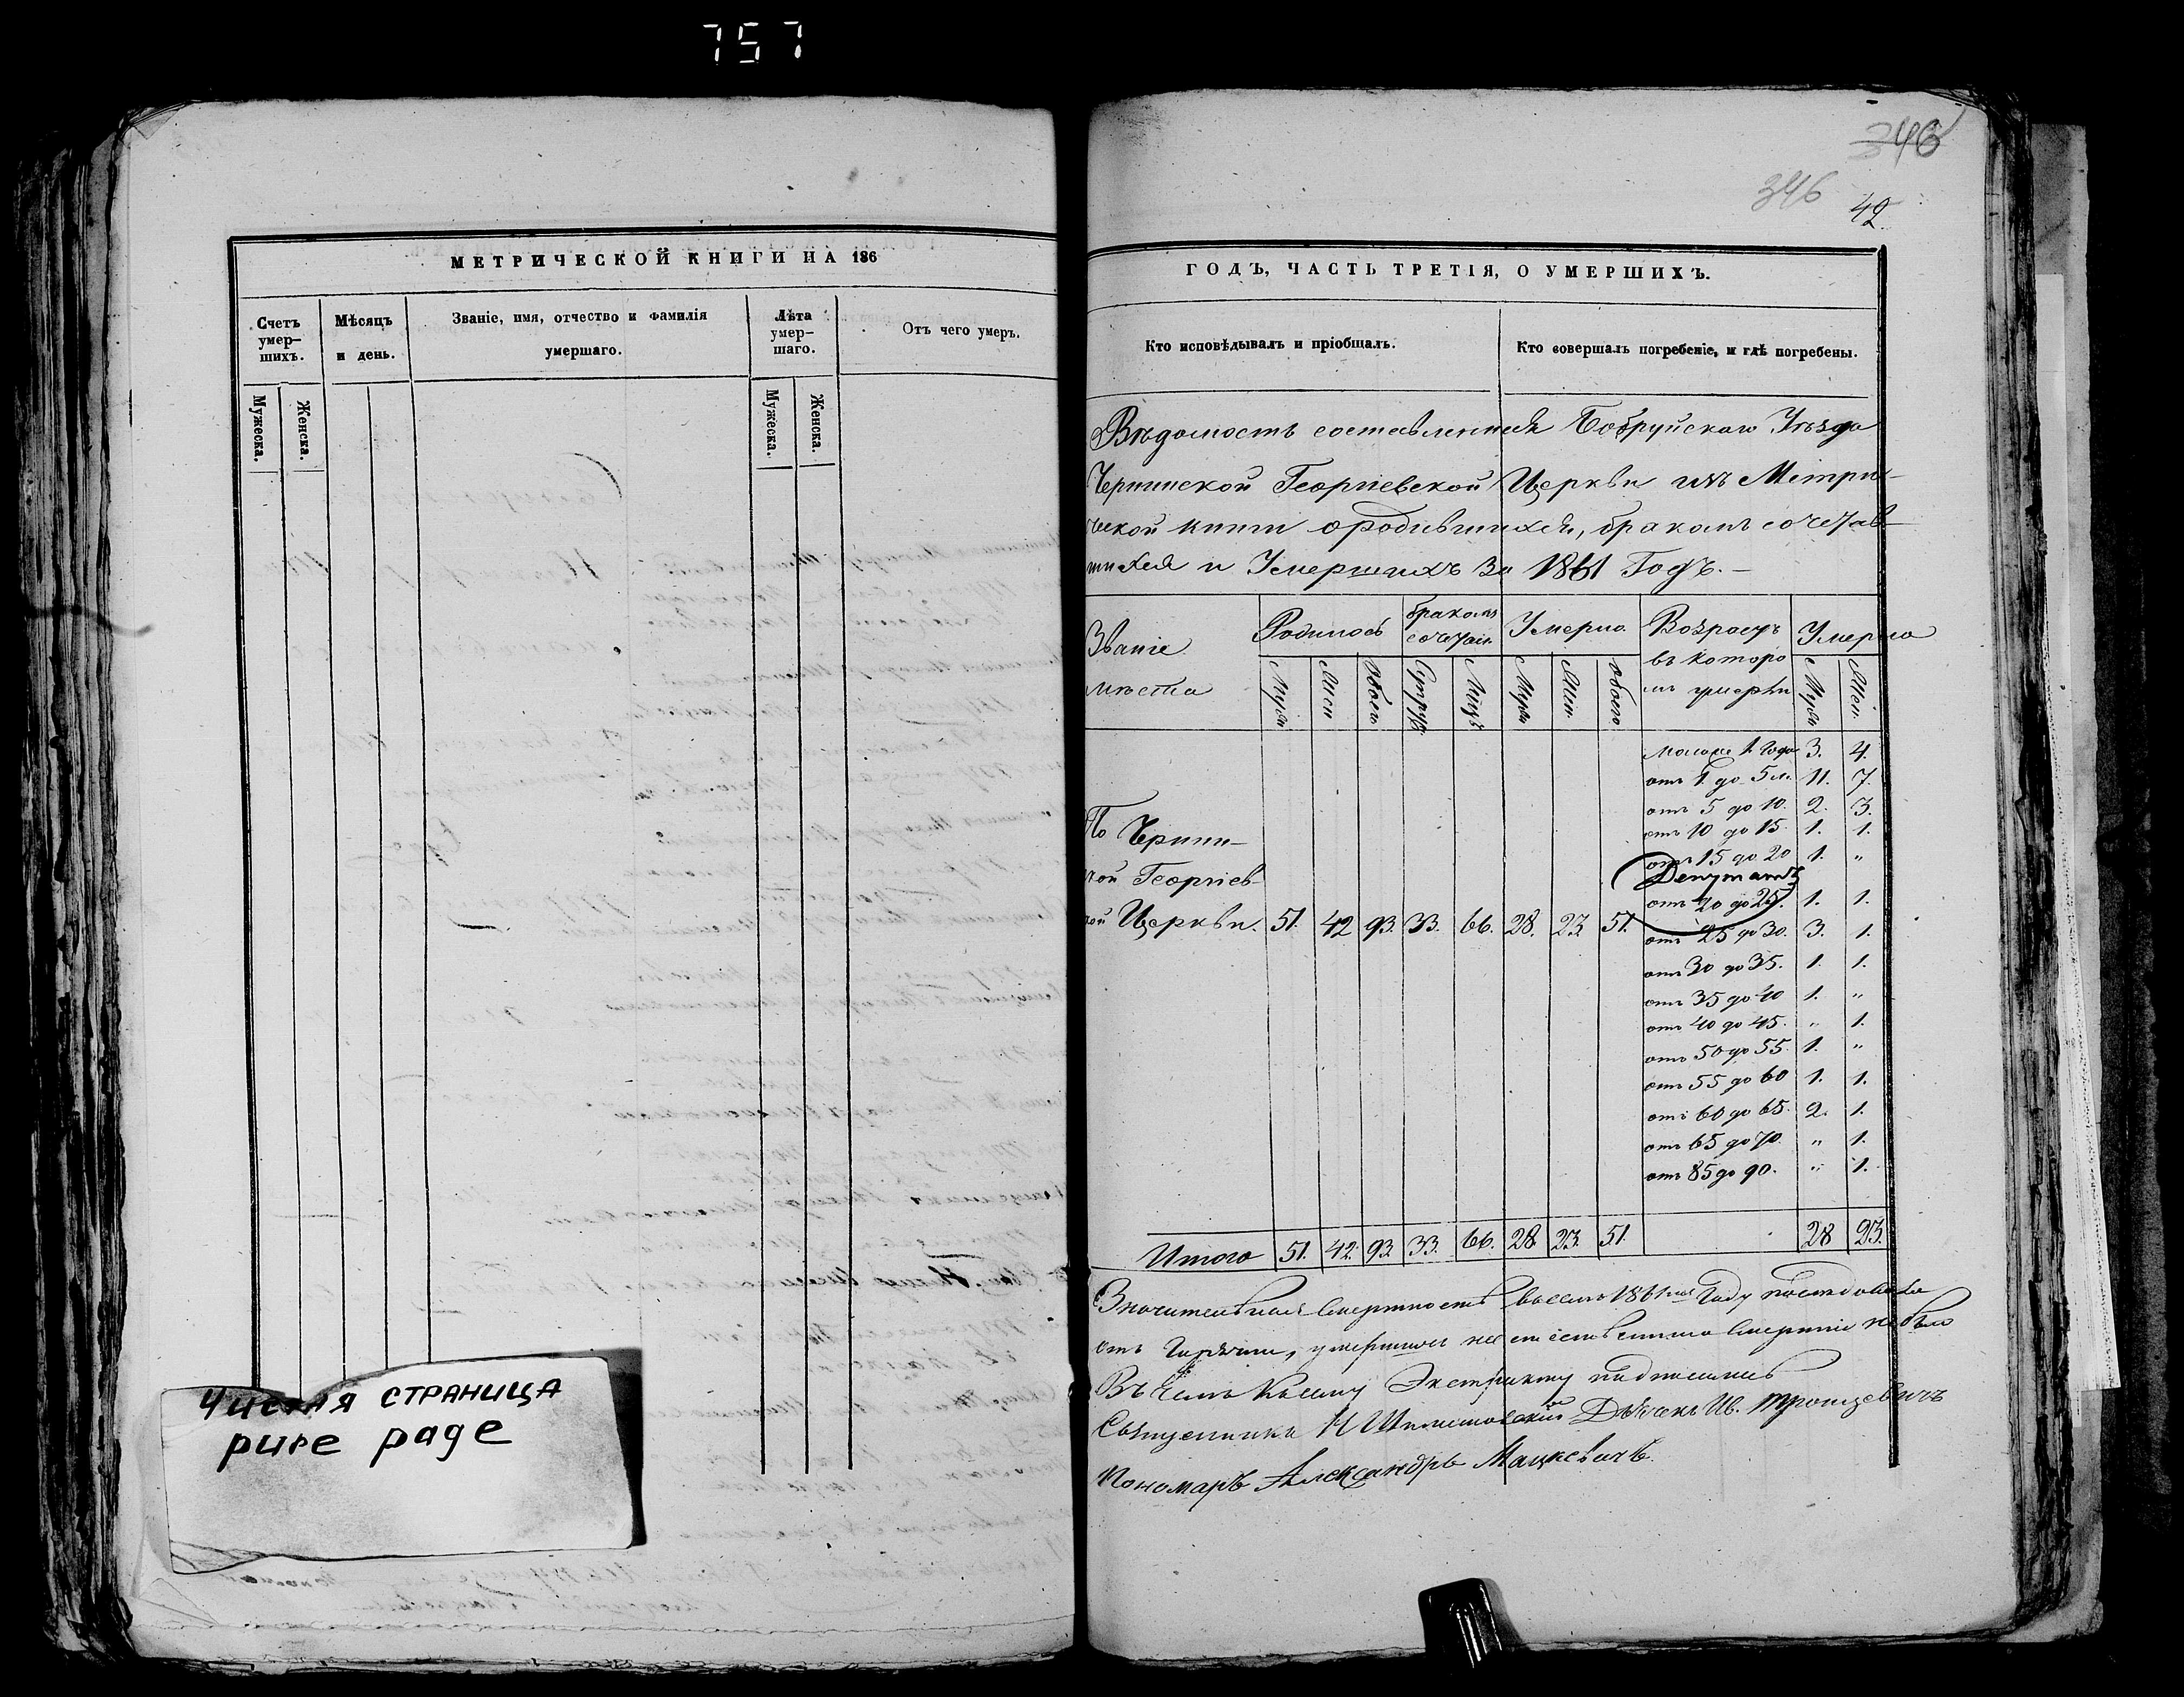 757
МЕТРИЧЕСКОЙ КНИГИ НА 186
Счетъ умер–шихъ.
Мѣсяцъ и день.
Званіе, имя, отчество и фамилія умершаго.
Лѣта умер–шаго.
Отъ чего умеръ.
Мужеска.
Женска.
Мужеска.
Женска.
Чистая страница
pure page
346
346
42.
ГОДЪ, ЧАСТЬ ТРЕТІЯ, О УМЕРШИХЪ.
Кто исповѣдывалъ и пріобщалъ.
Кто совершалъ погребеніе, и гдѣ погребены.
Вѣдомость составленная Бобруйскаго Уѣзда
Чернинской Георгіевской Церкви изъ Метри–
ческой книги о родившихся, бракомъ сочетав–
шихся и Умершихъ за 1861 Годъ. –
Званіе мѣста
Родилось
бракомъ сочетал.
Умерло.
Возрастъ въ которомъ умерли
Умерло
Муж Жен Обоег Супруж Лицъ Муж Жен. Обоего Муж Жен.
моложе 1 года 3. 4.
отъ 1 до 5 л. 11. 7.
отъ 5 до 10. 2. 3.
отъ 10 до 15. 1. 1.
отъ 15 до 20 1. "
Депутатъ
отъ 20 до 25. 1. 1.
По Чернин–
кой Георгіев–
кой Церкви. 51. 42 93. 33. 66. 28. 23. 51.
отъ 25 до 30. 3. 1.
отъ 30 до 35. 1. 1.
отъ 35 до 40 1. "
отъ 40 до 45. " 1.
отъ 50 до 55. 1. "
отъ 55 до 60 1. 1.
отъ 60 до 65. 2. 1.
отъ 65 до 70. " 1.
отъ 85 до 90. " 1.
Итого 51. 42. 93. 33. 66. 28. 23. 51. 28 23.
Значительная Смертность въ семъ 1861мъ Году послѣдовала
отъ умершихъ неестественною Смертію не было
Въ чемъ къ сему Экстракту подписались
Священникъ Дьячекъ Ив. Троицевичъ
Пономарь Александръ Мацкевичъ.